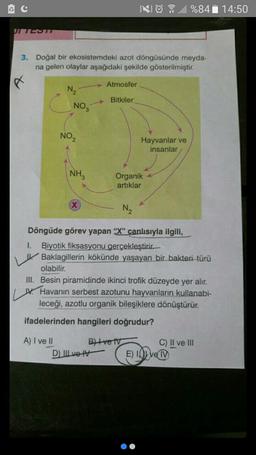 %84 14:50
3. Doğal bir ekosistemdeki azot döngüsünde meyda-
na gelen olaylar aşağıdaki şekilde gösterilmiştir.
N2
Atmosfer
NO3
Bitkiler
NO2
Hayvanlar ve
insanlar
NH3
Organik
artıklar
X
N2
Döngüde görev yapan "X" canlısıyla ilgili,
I. Biyotik fiksasyonu gerçekleştirir.
II. Baklagillerin kökünde yaşayan bir bakteri türü
olabilir.
III. Besin piramidinde ikinci trofik düzeyde yer alır.
IV. Havanın serbest azotunu hayvanların kullanabi-
leceği, azotlu organik bileşiklere dönüştürür.
ifadelerinden hangileri doğrudur?
A) I ve II
B) I ve IV
C) II ve III
D) III ve IV
E) I, II ve IV